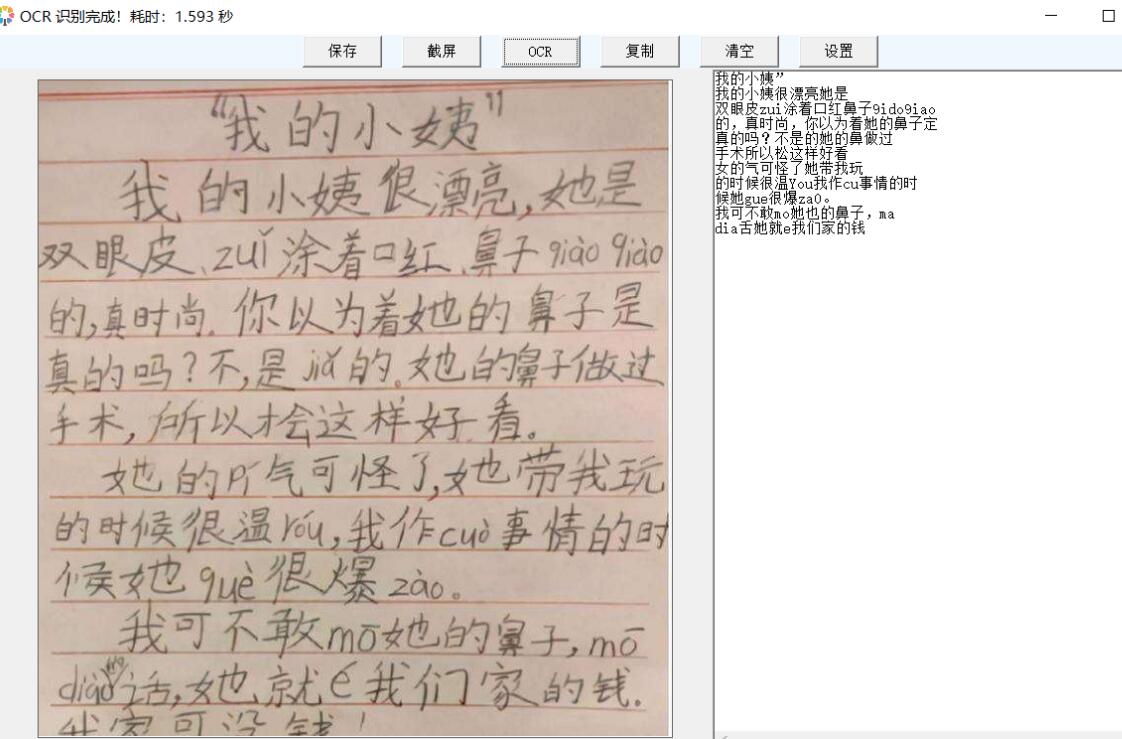 OCR 识别完成！耗时：1.593 秒
保存 截屏 OCR 复制 清空 设置
“我的小姨”
我的小姨很漂亮,她是
双眼皮、zuǐ涂着口红、鼻子qiào qiào
的,真时尚。你以为着她的鼻子是
真的吗?不,是jiǎ的。她的鼻子做过
手术,所以才会这样好看。
她的pí气可怪了,她带我玩
的时候很温róu,我作cuò事情的时
候她què很爆zào。
我可不敢mō她的鼻子,mō
diào的话,她就é我们家的钱。
我家可没钱!
我的小姨”
我的小姨很漂亮她是
双眼皮zui涂着口红鼻子9ido9iao
的，真时尚，你以为着她的鼻子定
真的吗？不是的她的鼻做过
手术所以松这样好看
女的气可怪了她带我玩
的时候很温You我作cu事情的时
候她gue很爆za0。
我可不敢mo她也的鼻子，ma
dia舌她就e我们家的钱